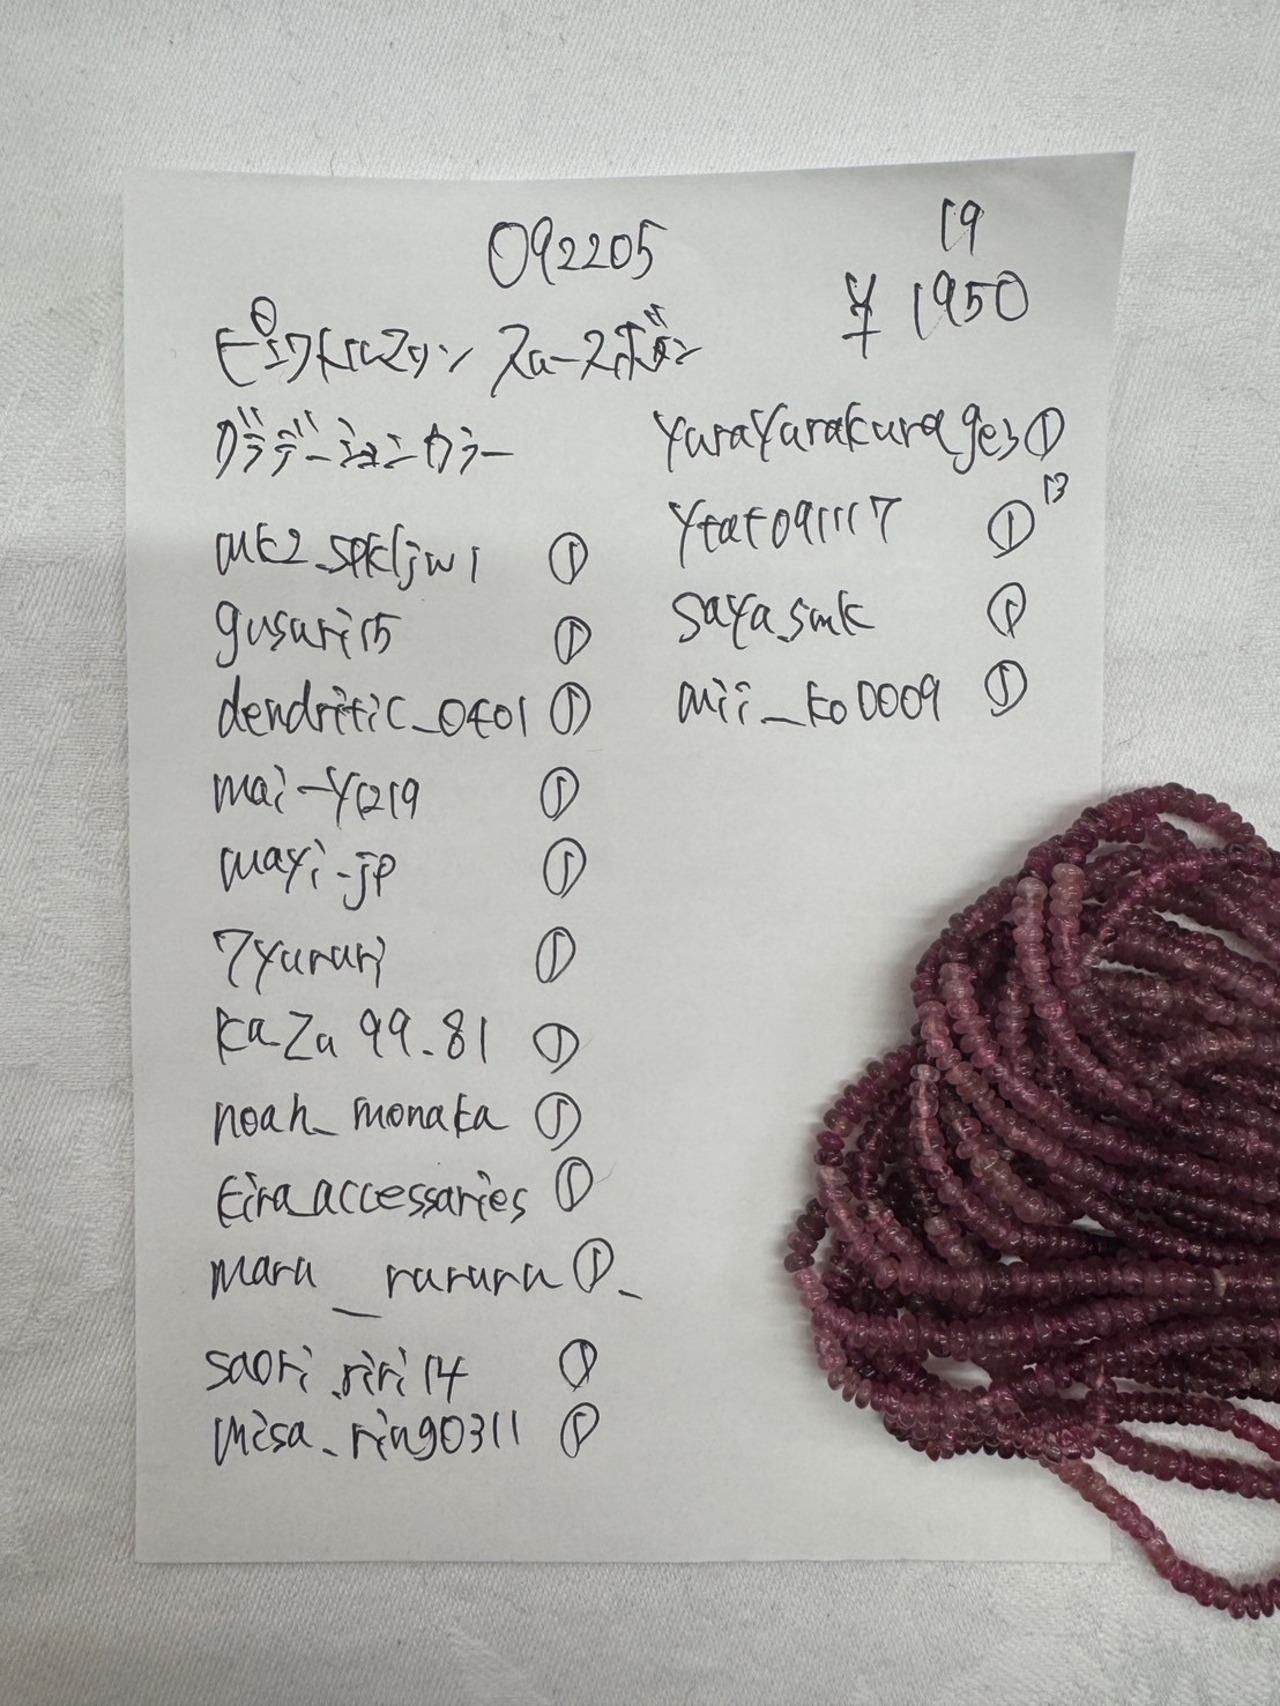 092205
19
¥ 1950
ピンクトルマリン スムースボタン
グラデーションカラー
mk2_spkljw1 ①
gusari15 ①
dendritic_0401 ①
mai-y1219 ①
mayi-jp ①
7yururi ①
kaza99.81 ①
noah_monaka ①
kira_accessaries ①
maru__rururu①_
saori.riri14 ①
misa_ring0311 ①
yurayurakurages①
ytat091117 ① 13
saya.smk ①
mii_ko0009 ①